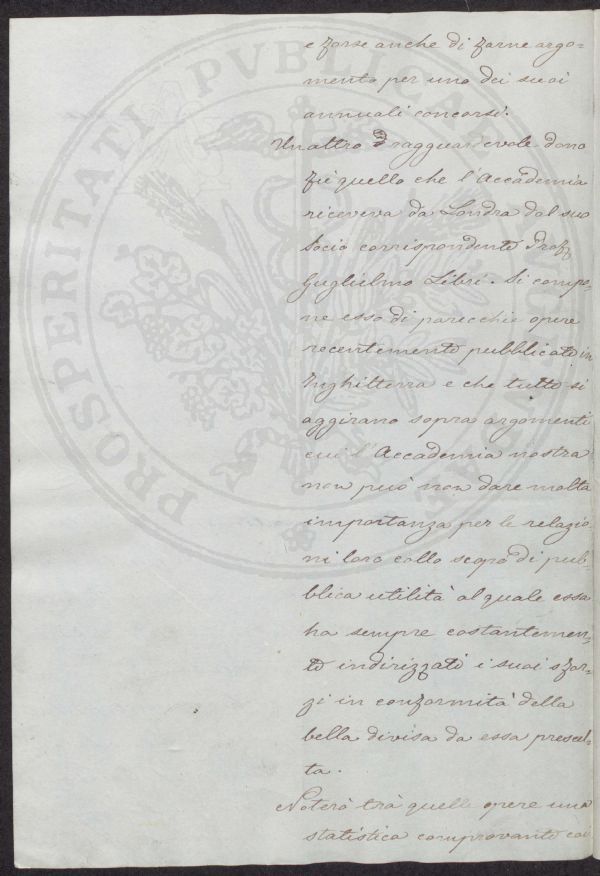 e forse anche di farne argo=
mento per uno dei suoi
annuali concorsi.
Un altro ragguardevole dono
fu quello che l'Accademia
riceveva da Londra dal suo
Socio corrispondente Prof.
Guglielmo Libri. Si compo=
ne esso di parecchie opere
recentemente pubblicate in
Inghilterra e che tutte si
aggirano sopra argomenti
cui l'Accademia nostra
non può non dare molta
importanza per le relazio
ni loro collo scopo di pub=
blica utilità al quale essa
ha sempre costantemen=
te indirizzati i suoi sfor=
zi in conformità della
bella divisa da essa prescel=
ta.
Noterò trà quelle opere una
statistica comprovante
PROSPERITATI PUBLICAE